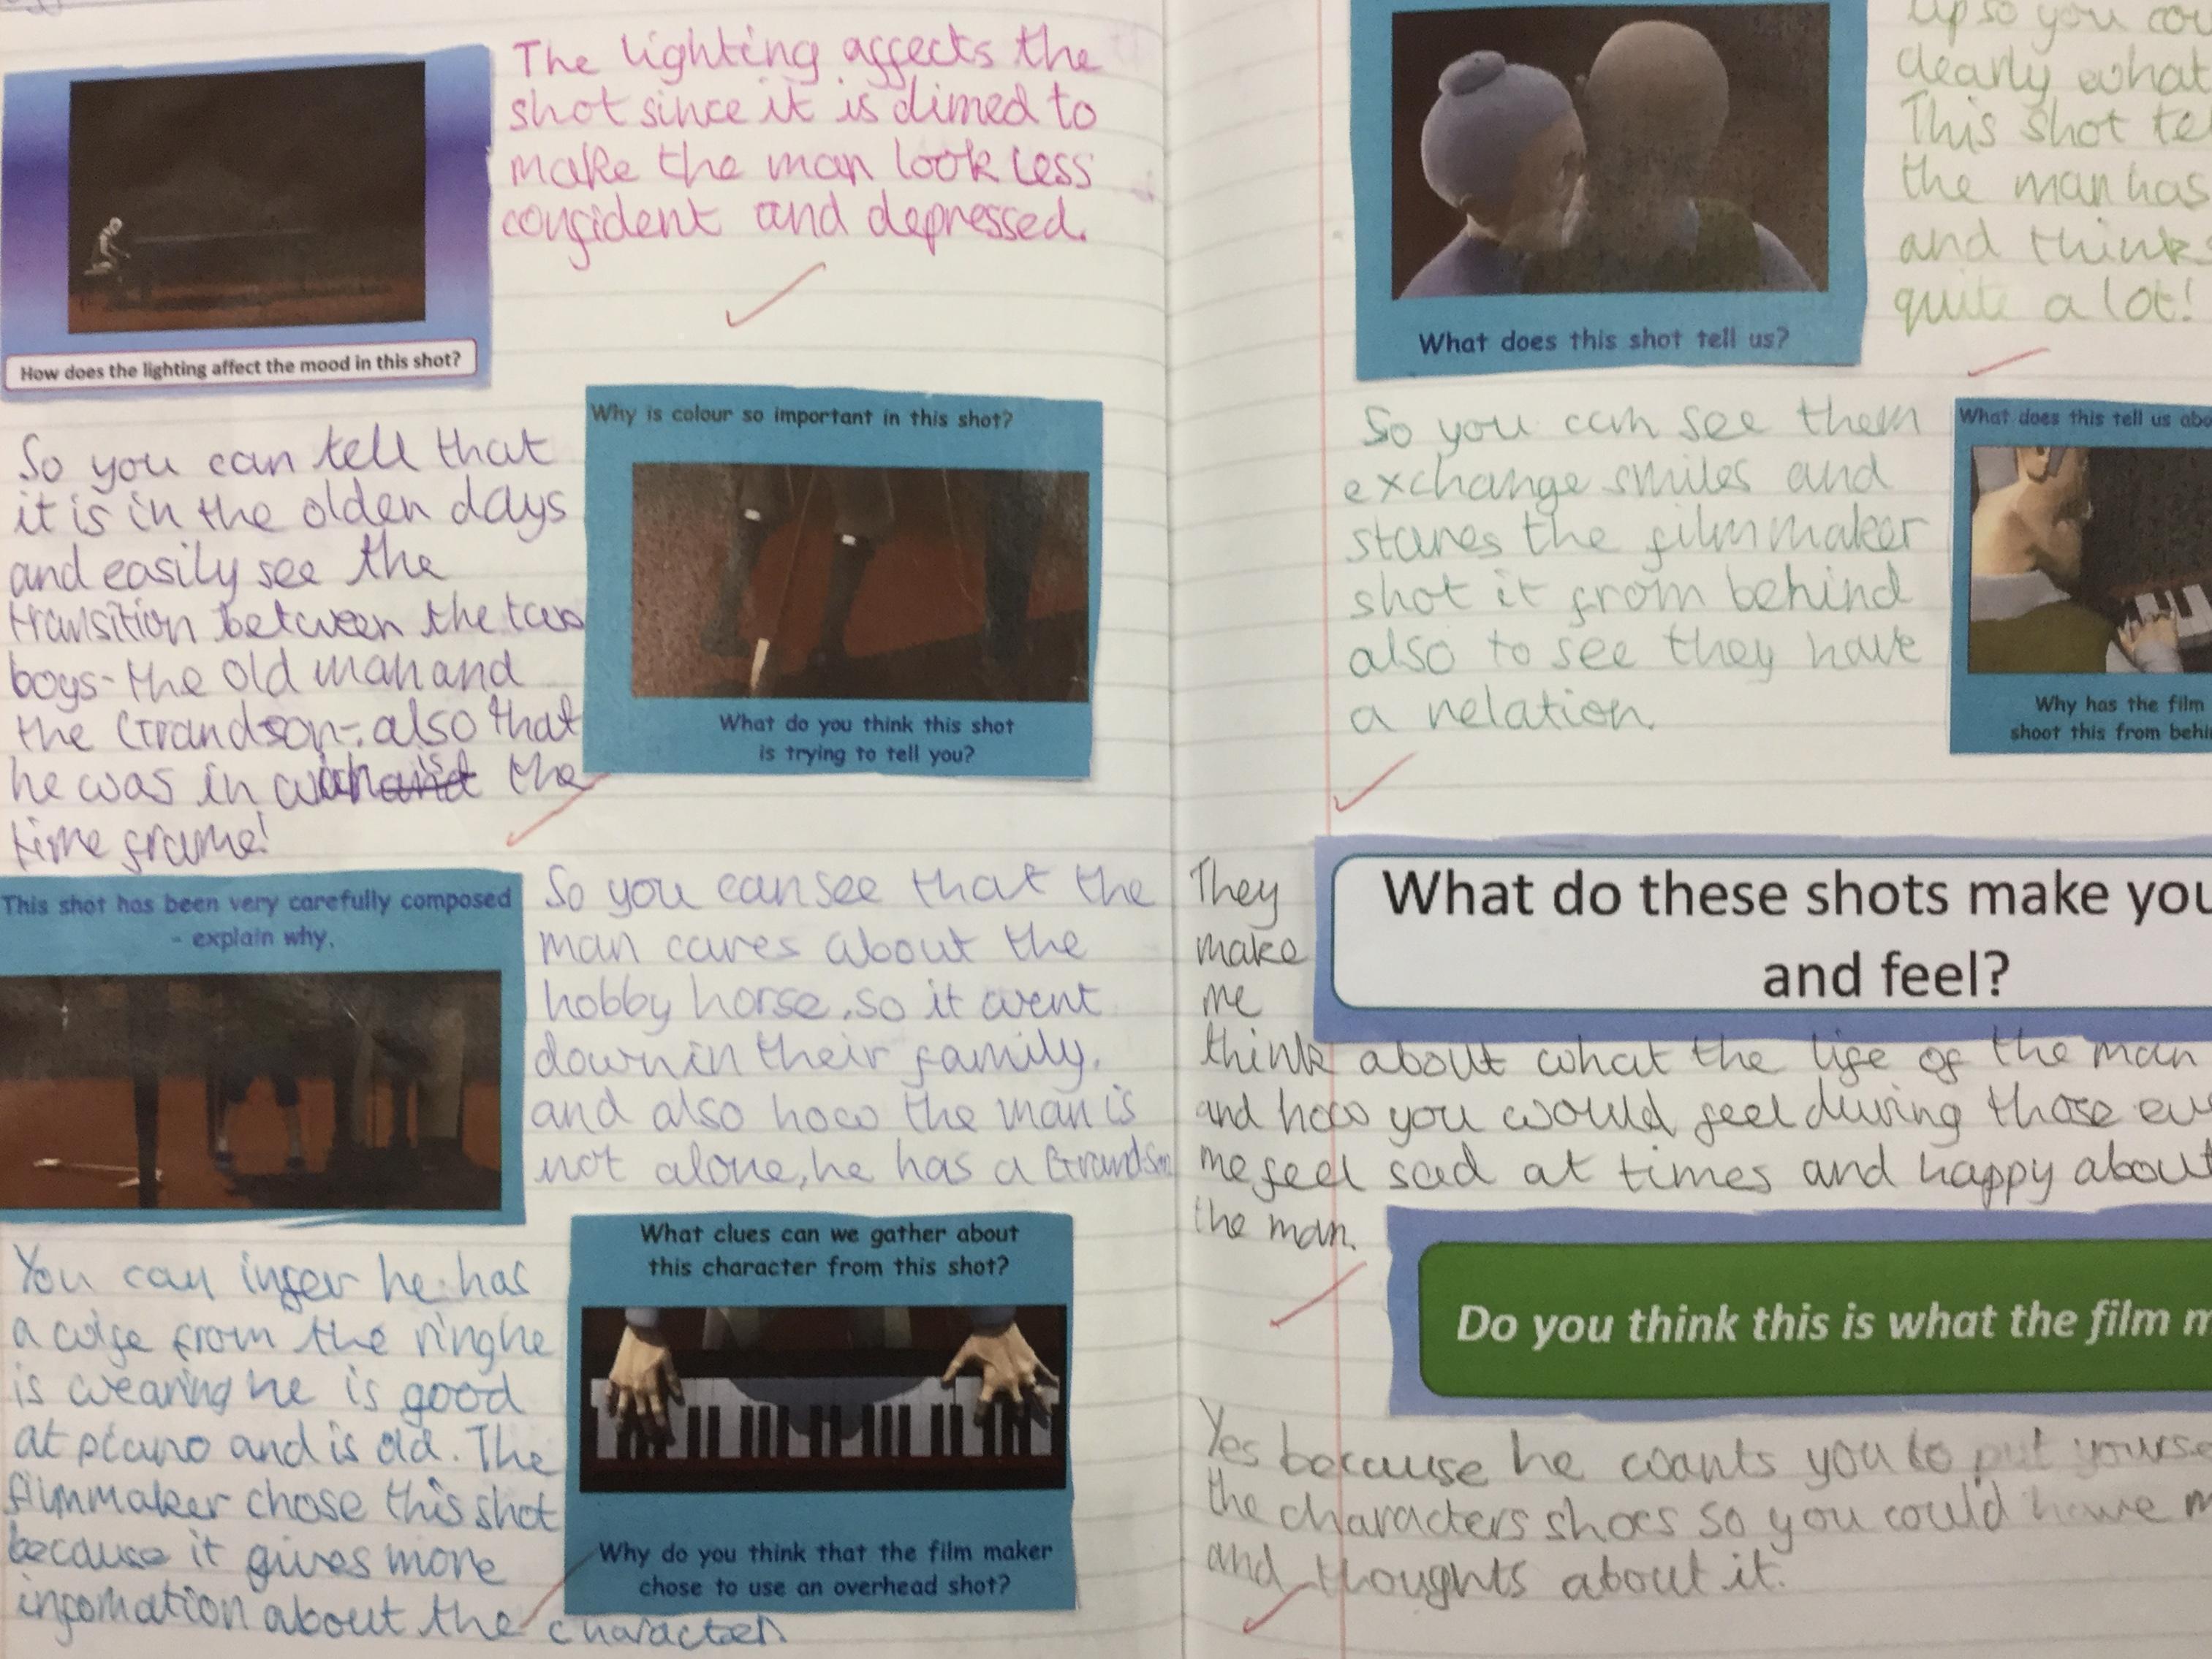 The lighting affects the
shot since it is dimed to
make the man look less
confident and depressed.
How does the lighting affect the mood in this shot?
Why is colour so important in this shot?
What do you think this shot
is trying to tell you?
So you can tell that
it is in the olden days
and easily see the
transition between the two
boys - the old man and
the Grandson -. also that
he was in the
time frame!
This shot has been very carefully composed
- explain why.
So you can see that the
man cares about the
hobby horse, so it went
down in their family.
and also how the man is
not alone, he has a Grandson
What clues can we gather about
this character from this shot?
Why do you think that the film maker
chose to use an overhead shot?
You can infer he has
a wife from the ring he
is wearing he is good
at piano and is old. The
filmmaker chose this shot
because it gives more
infomation about the character.
up so you
clearly what
This shot
the man has
and thinks
quite a lot!
What does this shot tell us?
So you can see them
exchange smiles and
stares the filmmaker
shot it from behind
also to see they have
a relation.
What does this tell us
Why has the film
shoot this from
What do these shots make
and feel?
They
make
me
think about what the life of the man
and how you would feel during those
me feel sad at times and happy about
the man.
Do you think this is what the film
Yes because he wants you to put
the characters shoes so you could have
and thoughts about it.